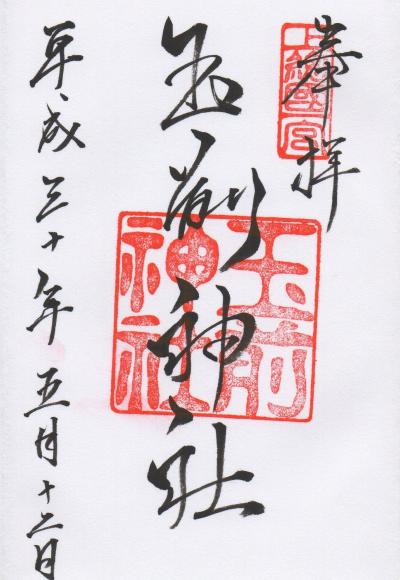 奉拝
上総國一宮
玉前神社
玉前神社
平成三十年五月十二日